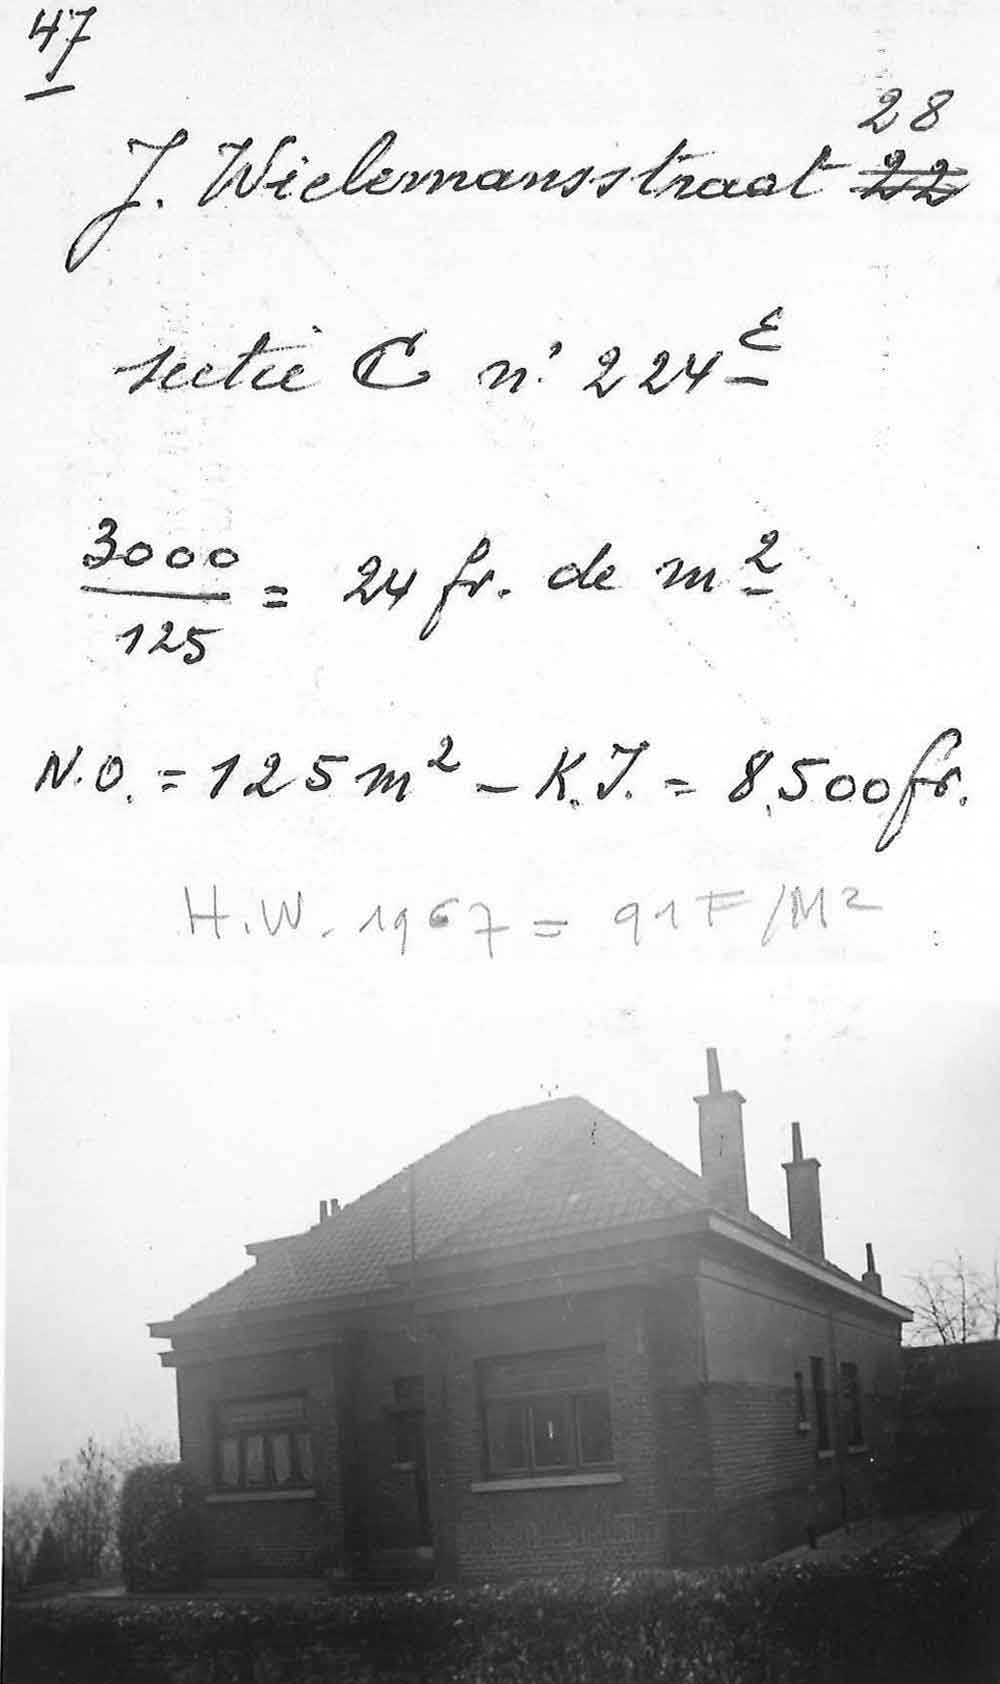 47
28
J. Wielemansstraat 22
sectie C n° 224E
3000
125 = 24 fr. de m2
N.O. = 125 m2 - K.I. = 8.500 fr.
H.W. 1967 = 91 F/M2